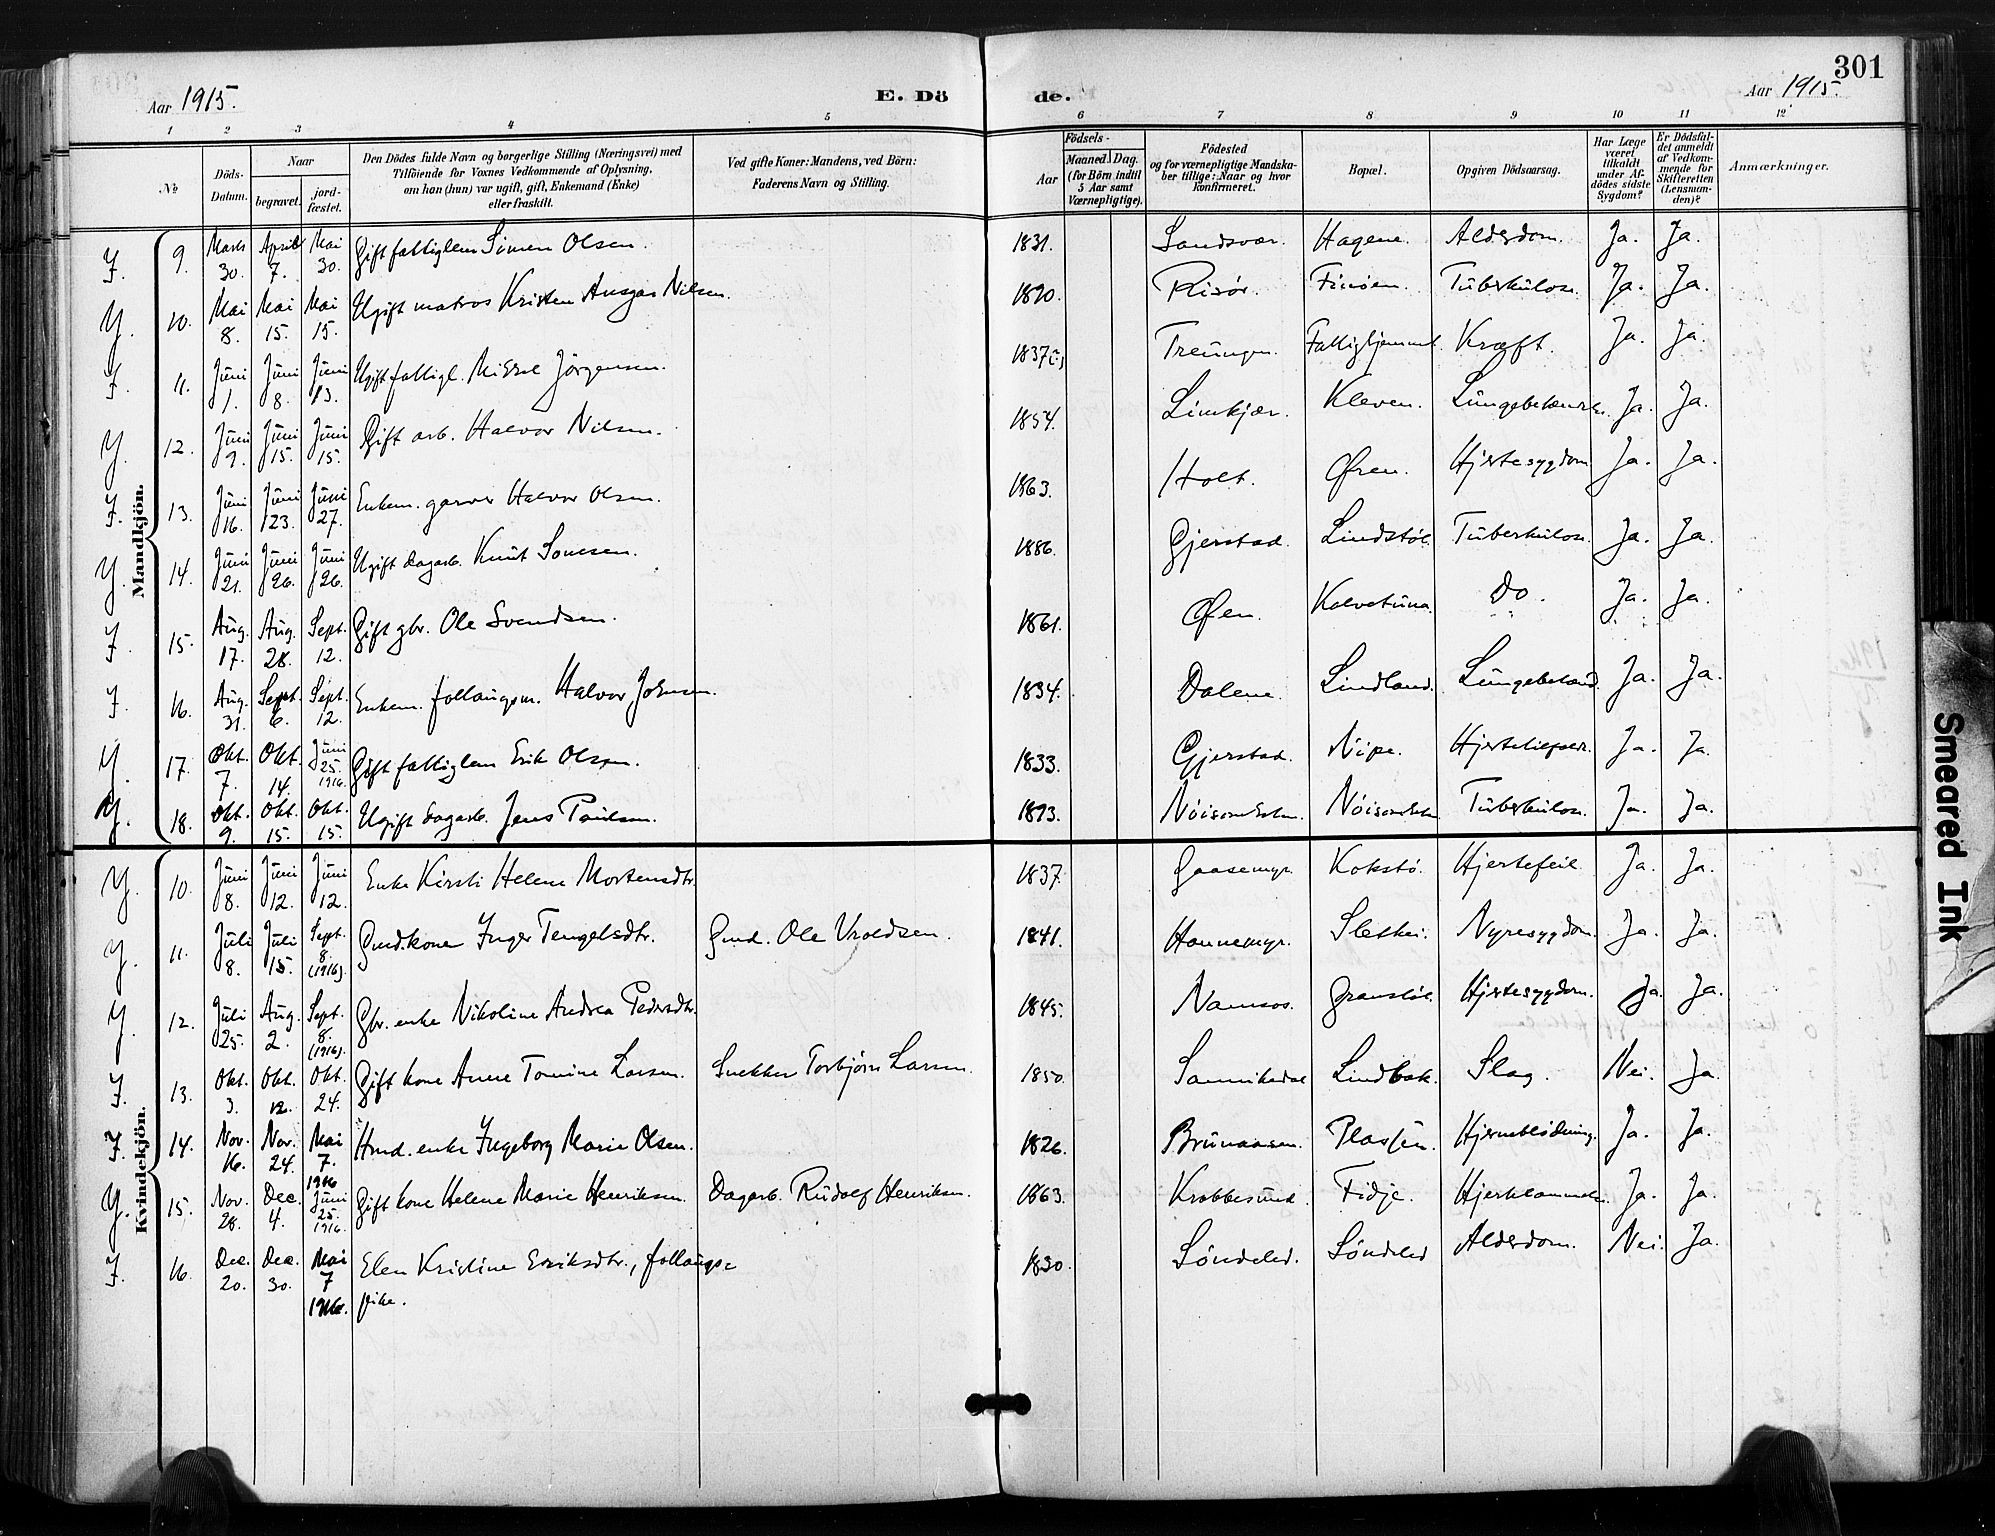 301
Aar 1915.
E. Dö
de.
Aar 1915.
1 2 3 4 5 6 7 8 9 10 11 12
№
Döds-Datum.
Naar
begravet.
jord-fæstet.
Den Dödes fulde Navn og borgerlige Stilling (Næringsvei) med
Tilföiende for Voxnes Vedkommende af Oplysning,
om han (hun) var ugift, gift, Enkemand (Enke)
eller fraskilt.
Ved gifte Koner: Mandens, ved Börn:
Faderens Navn og Stilling.
Födsels-
Aar
Maaned. Dag.
(for Börn indtil
5 Aar samt
Værnepligtige).
Födested
og for værnepligtige Mandska-
ber tillige: Naar og hvor
konfirmeret.
Bopæl.
Opgiven Dödsaarsag.
Har Læge
været
tilkaldt
under Af-
dödes sidste
Sygdom?
Er Dödsfal-
det anmeldt
af Vedkom-
mende for
Skifteretten
(Lensman-
den)?
Anmærkninger.
Mandkjön.
9. Marts 30. April 7. Mai 30. Gift fattiglem Simen Olsen. 1831. Sandsvær. Hagene. Alderdom. Ja. Ja.
10. Mai 8. Mai 15. Mai 15. Ugift matros Kristen Ansgar Nilsen. 1890. Risör. Finöen. Tuberkulose. Ja. Ja.
11. Juni 1. Juni 8. Juni 13. Ugift fattigl. Jørgensen. 1837 Treungen. Fattighjemmet. Kræft. Ja. Ja.
12. Juni 9. Juni 15. Juni 15. Gift arb. Halvor Nilsen. 1854. Limkjær. Kleven. Ja. Ja.
13. Juni 16. Juni 23. Juni 27. Enkem. garver Halvor Olsen. 1863. Holt. Øfren. Hjertesygdom Ja. Ja.
14. Juni 21. Juni 26. Juni 26. Ugift dagarb. Knut Sonesen. 1886. Gjerstad. Lindstøl. Tuberkulose. Ja. Ja.
15. Aug. 17. Aug. 28. Sept. 12. Gift gbr. Ole Svendsen. 1861. Kalvetuna. Do. Ja. Ja.
16. Aug. 31. Sept. 6. Sept. 12. Enkem. follaugsm. Halvor Johnsen. 1834. Dalene. Lindland. Ja. Ja.
17. Okt. 7. Okt. 14. Juni 25. 1916. Gift fattiglem Erik Olsen. 1833. Gjerstad. Nipe. Ja. Ja.
18. Okt. 9. Okt. 15. Okt. 15. Ugift dagarb. Jens Paulsen. 1893. Nöisomheden. Nöisomheden Tuberkulose. Ja. Ja.
Kvindekjön.
10. Juni 8. Juni 12. Juni 12. Enke Kirsti Helene Mortensdtr. 1837. Gaasemyr. Kokstö. Hjertefeil. Ja. Ja.
11. Juli 8. Juli 15. Sept. 8. (1916). Gmd.kone Inger Tengelsdtr. Gmd. Ole Vroldsen. 1841. Hannemyr. Slethei. Nyresygdom. Ja. Ja.
12. Juli 25. Aug. 2. Sept. 8. (1916). Gbr. enke Nikoline Andrea Pedersdtr. 1845. Namsos. Granstøl. Hjertesygdom. Ja. Ja.
13. Okt. 3. Okt. 12. Okt. 24. Gift kone Anne Tomine Larsen. Snekker Torbjørn Larsen. 1850. Sannikedal Lindbak. Slag. Nei. Ja.
14. Nov. 16. Nov. 24. Mai 7. 1916 Hmd. enke Ingeborg Marie Olsen. 1826. Brunaasen. Plassen. Hjerneblödning. Ja. Ja.
15. Nov. 28. Dec. 4. Juni 25. 1916. Gift kone Helene Marie Henriksen. Dagarb. Rudolf Henriksen. 1863. Krabbesund. Fidje. Hjertelammelse Ja. Ja.
16. Dec. 20. Dec. 30. Mai 7 1916. Elen Kristine Eriksdtr., follaugs=
pike. 1830. Söndeled. Söndeled Alderdom. Nei. Ja.
Smeared Ink